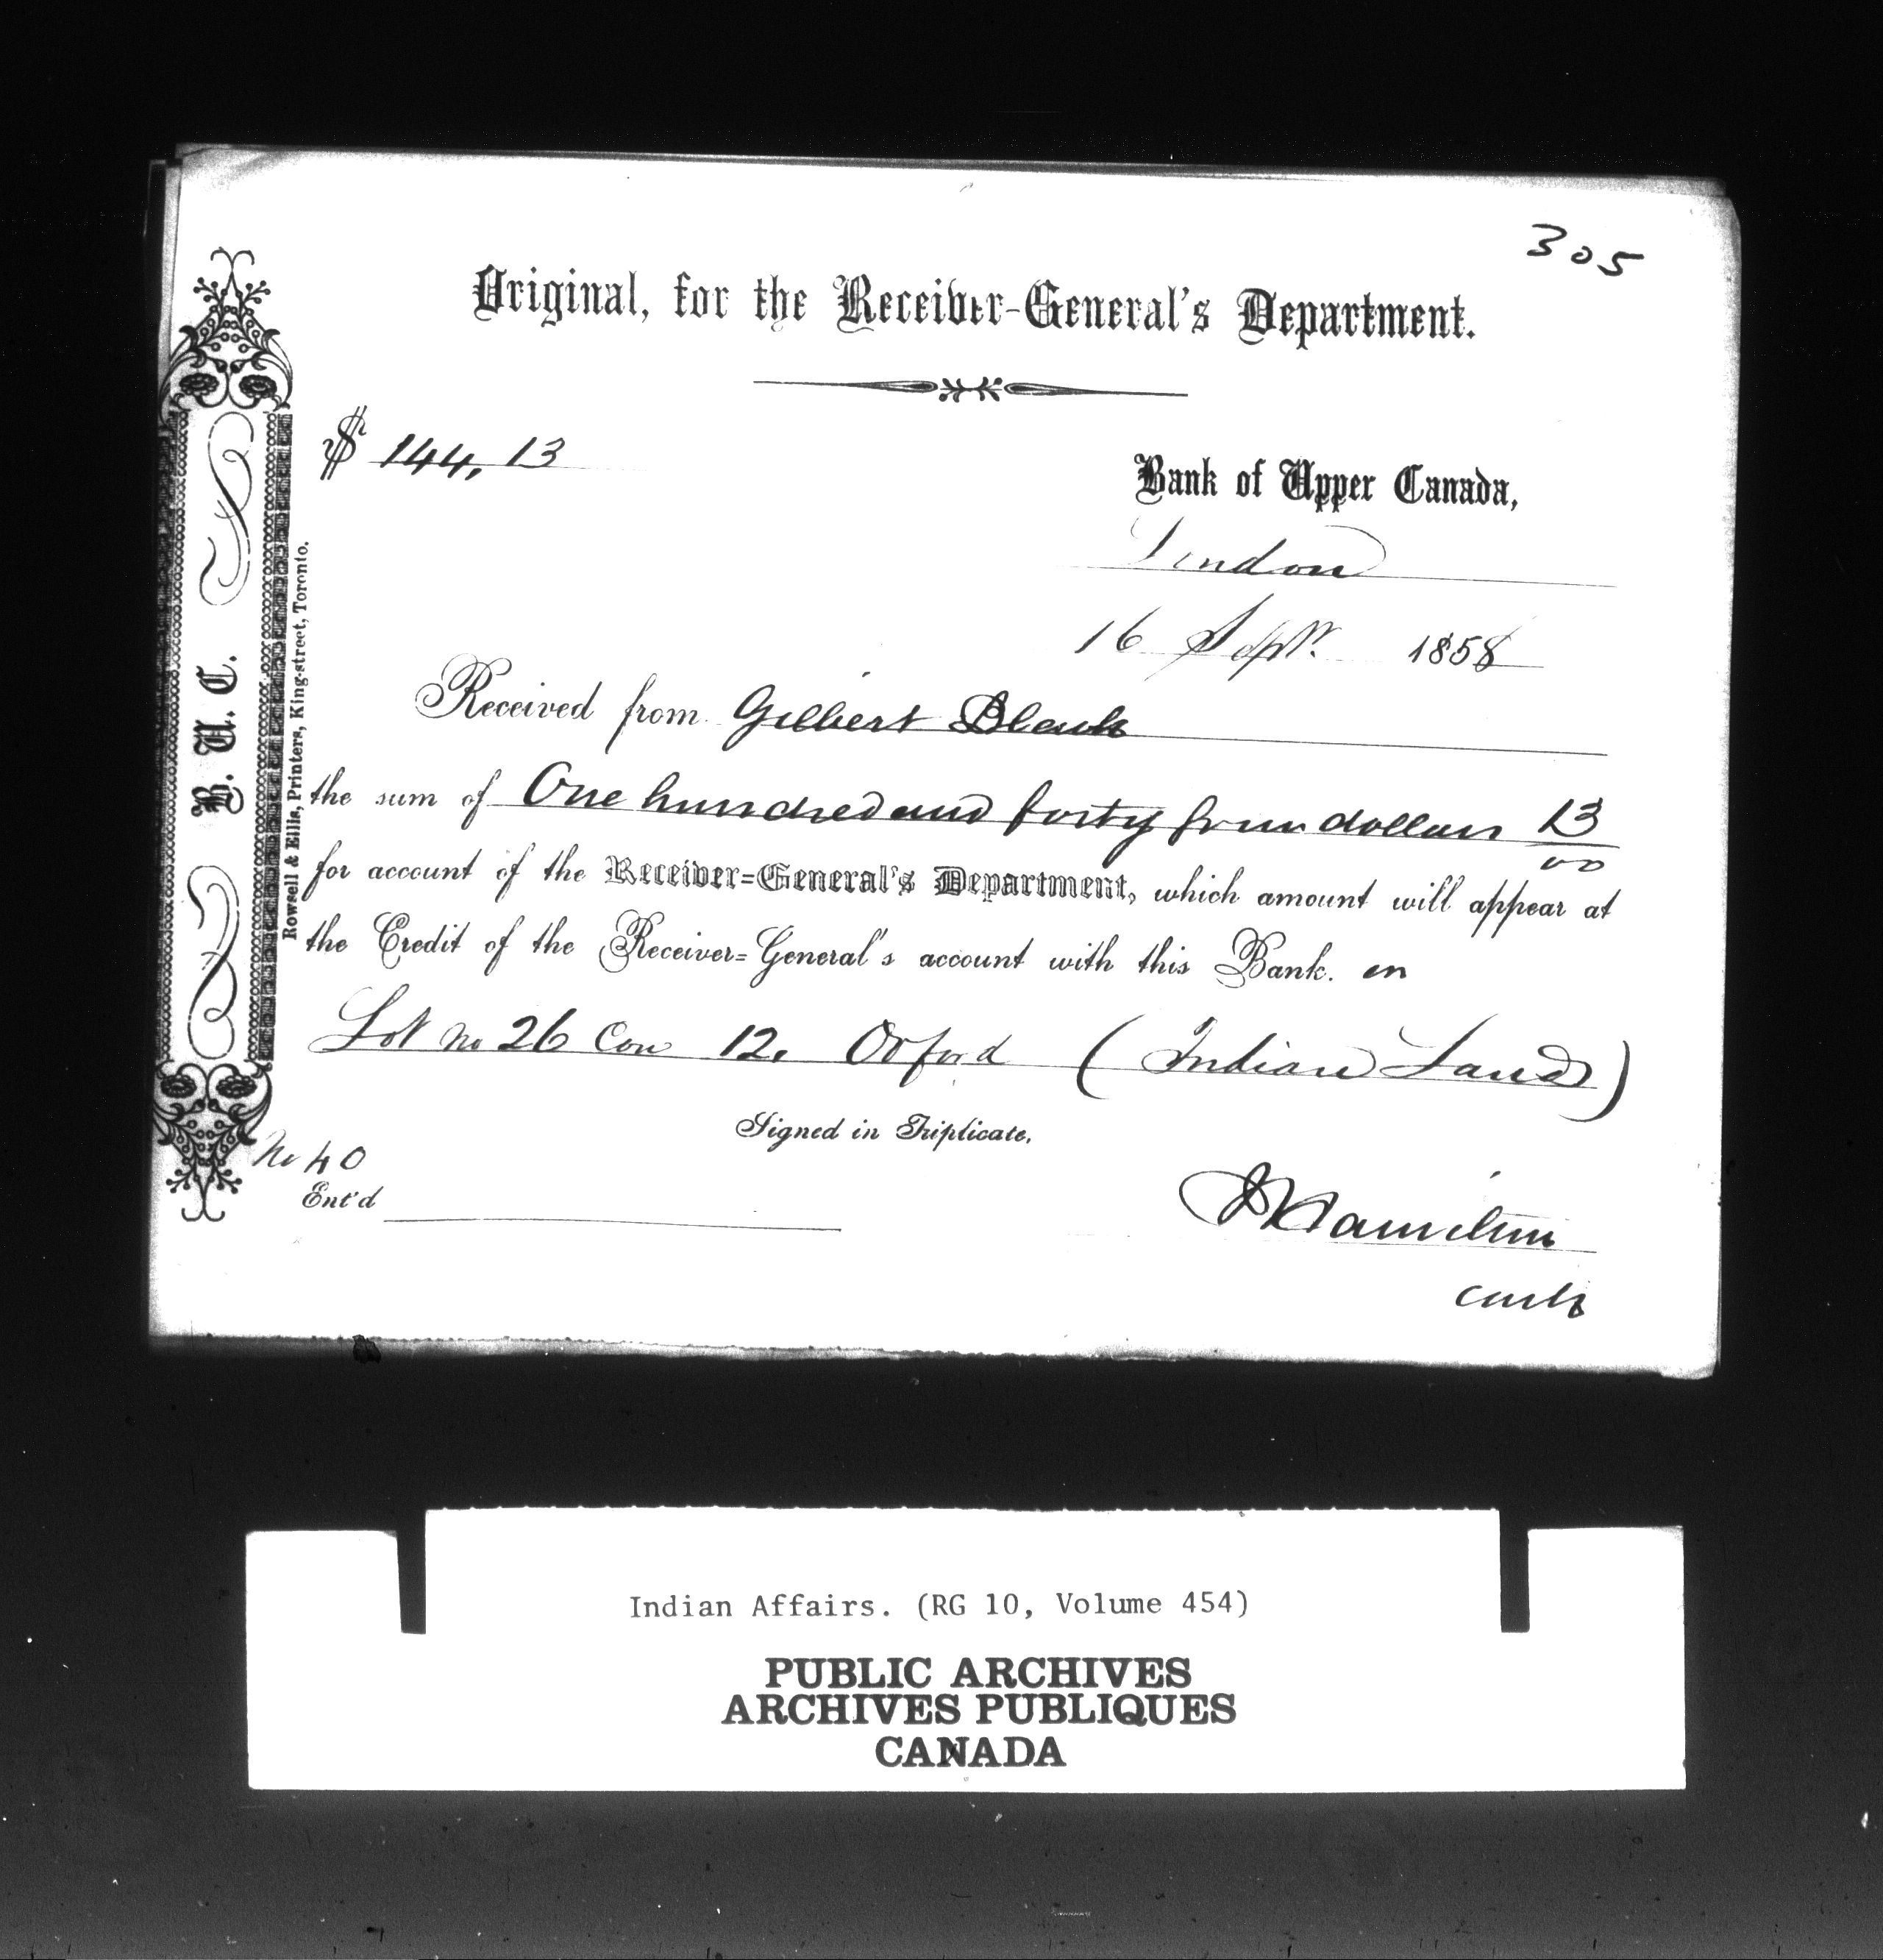 305
Original, for the Receiver-General's Department.
$ 144, 13
Bank of Upper Canada,
London
16 Septr. 1858
Received from Gilbert
the sum of One hundred and forty four dollars 13/00
for account of the Receiver=General's Department, which amount will appear at
the Credit of the Receiver=General's account with this Bank. on
Lot No 26 Con 12. Orford (Indian Land)
Signed in Triplicate,
No 40
Ent'd
Hamilton
B. U. C.
Rowsell & Ellis, Printers, King-street, Toronto.
Indian Affairs. (RG 10, Volume 454)
PUBLIC ARCHIVES
ARCHIVES PUBLIQUES
CANADA